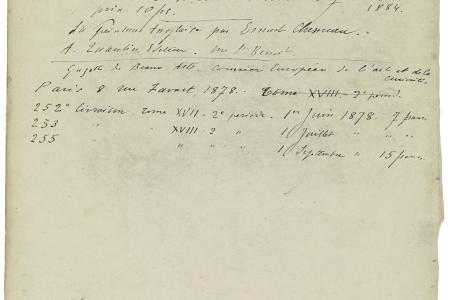 prix 10 fs. 1884.
La Peinture Anglaise par Ernest Chesneau.
A. Quantin, Editeur. rue St Benoit.
Gazette des Beaux Arts. courrier Européen de l'art et de la curiosité.
Paris 8 rue Favart 1878. Tome XVIII - 2e période.
252e livraison tome XVII - 2e période. 1er Juin 1878. 7 francs
253 XVIII - 2 " 1er Juillet " " "
255 " " " 1er Septembre " 15 francs